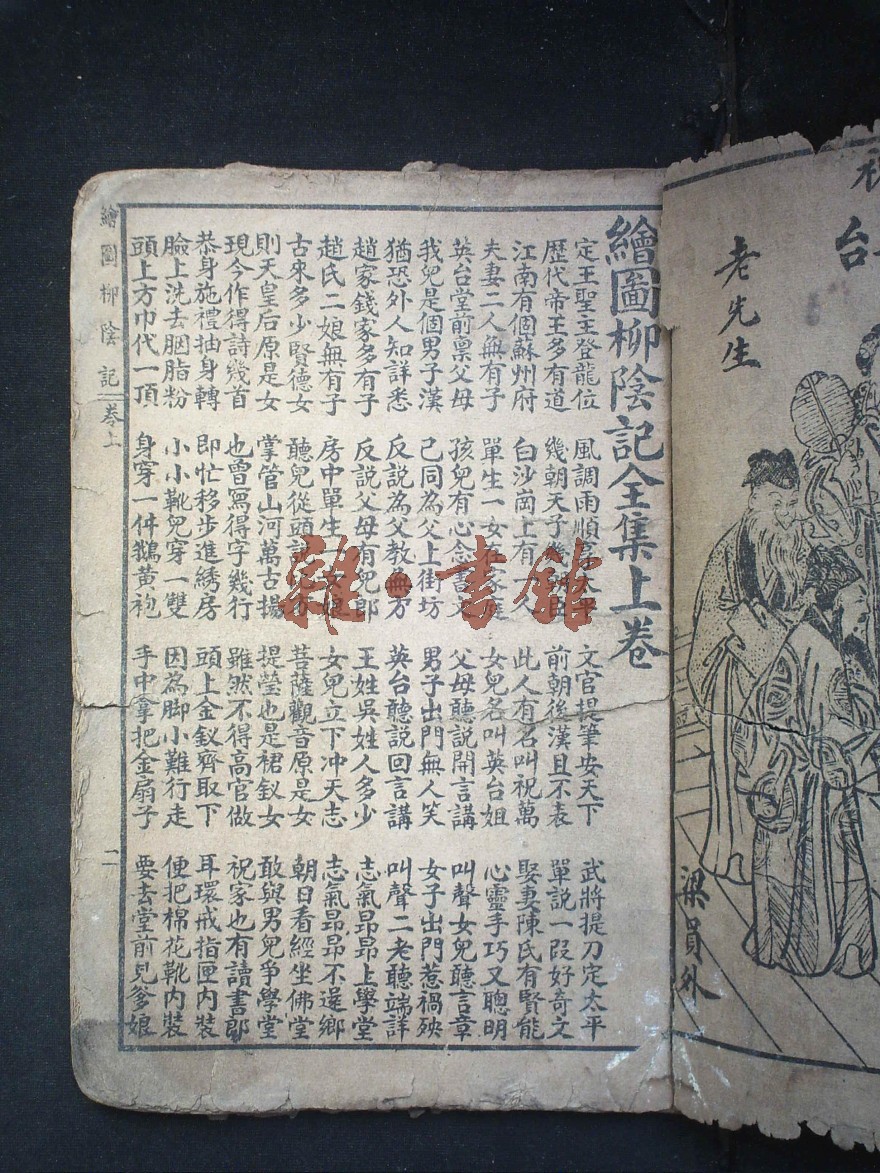 台
老先生
梁員外
繪圖柳陰記全集上卷
定王聖王登龍位 風調雨順太平 文官提筆安天下 武將提刀定太平
歷代帝王多有道 幾朝天子幾臣 前朝後漢且不表 單說一段好奇文
江南有個蘇州府 白沙崗上有一人 此人有名叫祝萬 娶妻陳氏有賢能
夫妻二人無有子 單生一女在家庭 女兒名叫英台姐 心靈手巧又聰明
英台堂前禀父母 孩兒有心念書文 父母聽說開言講 叫聲女兒聽言章
我兒是個男子漢 己同為父上街坊 男子出門無人笑 女子出門惹禍殃
猶恐外人知詳悉 反說為父教無方 英台聽說回言講 叫聲二老聽端詳
趙家錢家多有子 反說父母有兒郎 王姓吳姓人多少 志氣昂昂上學堂
趙氏二娘無有子 房中單生一女娘 女兒立下冲天志 志氣昂昂不還鄉
古來多少賢德女 聽兒從頭說 菩薩觀音原是女 朝日看經坐佛堂
則天皇后原是女 掌管山河萬古揚 提瑩也是裙釵女 敢與男兒爭學堂
現今作得詩幾首 也曾寫得字幾行 雖然不得高官做 祝家也有讀書郎
恭身施禮抽身轉 即忙移步進綉房 頭上金釵齊取下 耳環戒指匣內裝
臉上洗去胭脂粉 小小靴兒穿一雙 因為脚小難行走 便把棉花靴內裝
頭上方巾代一頂 身穿一件鵝黃袍 手中拿把金扇子 要去堂前見爹娘
繪圖柳陰記 卷上 二
雜·書館